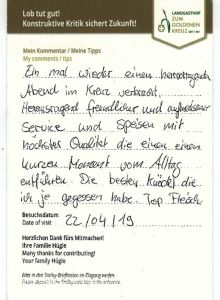 Lob tut gut!
Konstruktive Kritik sichert Zukunft!
LANDGASTHOF
ZUM
GOLDENEN
KREUZ
Mein Kommentar / Meine Tipps
My comments / tips
Ein mal wieder einen hervorragenden
Abend im Kreuz verbracht.
Herausragend freundlicher und aufmerksamer
Service und Speisen mit
höchster Qualität die einen einen
kurzen Moment vom Alltag
entführen. Die besten Knöckle die
ich je gegessen habe. Top Fleisch
Besuchsdatum
Date of visit
22/04/19
Herzlichen Dank fürs Mitmachen!
Ihre Familie Hügle
Many thanks for contributing!
Your family Hügle
Bitte in den Stelky-Briefkasten im Eingang werfen.
Please deposit in the Stelky letter box in the entrance.